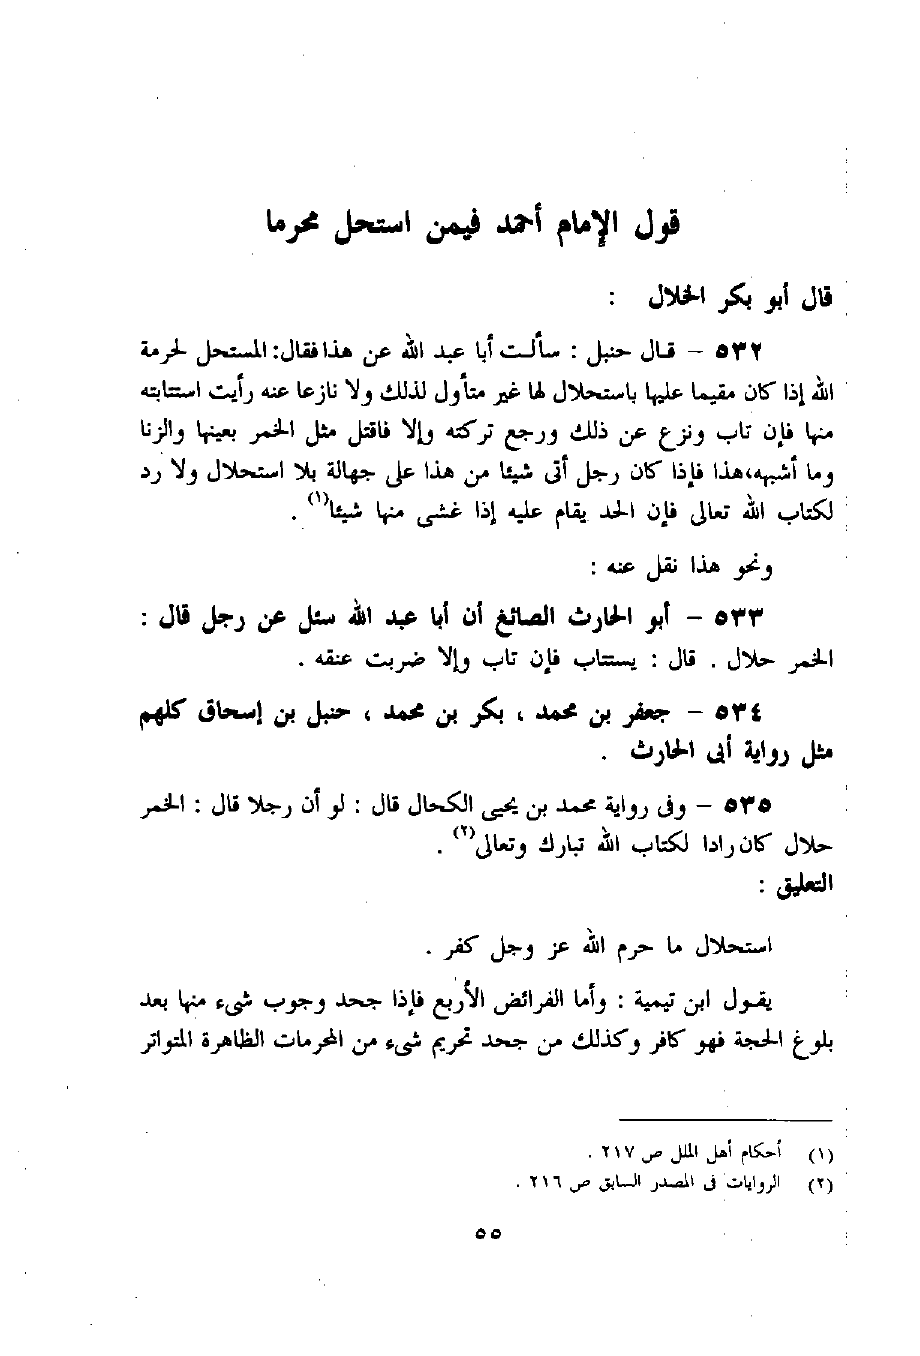 قول الإمام أحمد فيمن استحل محرما
قال أبو بكر الخلال :
٥٣٢ – قال حنبل : سألت أبا عبد الله عن هذا فقال: المستحل لحرمة
الله إذا كان مقيما عليها باستحلال لها غير متأول لذلك ولا نازعا عنه رأيت استتابته
منها فإن تاب ونزع عن ذلك ورجع تركته وإلا فاقتل مثل الخمر بعينها والزنا
وما أشبهه،هذا فإذا كان رجل أتى شيئا من هذا على جهالة بلا استحلال ولا رد
لكتاب الله تعالى فإن الحد يقام عليه إذا غشى منها شيئا(١) .
ونحو هذا نقل عنه :
٥٣٣ – أبو الحارث الصائغ أن أبا عبد الله سئل عن رجل قال :
الخمر حلال . قال : يستتاب فإن تاب وإلا ضربت عنقه .
٥٣٤ – جعفر بن محمد ، بكر بن محمد ، حنبل بن إسحاق كلهم
مثل رواية أبى الحارث .
٥٣٥ – وفى رواية محمد بن يحيى الكحال قال : لو أن رجلا قال : الخمر
حلال كان رادا لكتاب الله تبارك وتعالى(٢) .
التعليق :
استحلال ما حرم الله عز وجل كفر .
يقول ابن تيمية : وأما الفرائض الأربع فإذا جحد وجوب شىء منها بعد
بلوغ الحجة فهو كافر وكذلك من جحد تحريم شىء من المحرمات الظاهرة المتواتر
(١) أحكام أهل الملل ص ٢١٧ .
(٢) الروايات فى المصدر السابق ص ٢١٦ .
٥٥